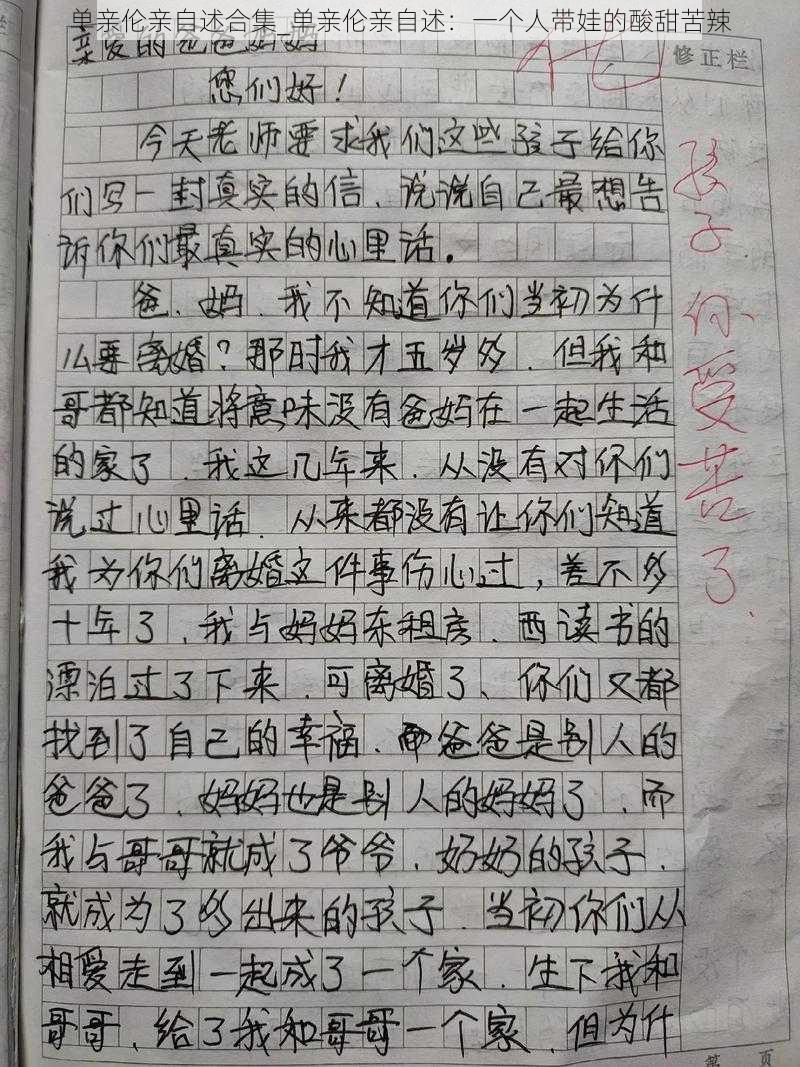 单亲伦亲自述合集_单亲伦亲自述：一个人带娃的酸甜苦辣
亲爱的爸爸妈妈
修正栏
您们好！
今天老师要求我们这些孩子给你
们写一封真实的信、说说自己最想告
诉你们最真实的心里话。
爸、妈、我不知道你们当初为什
么要离婚？那时我才五岁多、但我和
哥都知道将意味没有爸妈在一起生活
的家了、我这几年来、从没有对你们
说过心里话、从来都没有让你们知道
我为你们离婚这件事伤心过，差不多
十年了、我与妈妈东租房、西读书的
漂泊过了下来、可离婚了、你们又都
找到了自己的幸福、而爸爸是别人的
爸爸了、妈妈也是别人的妈妈了、而
我与哥哥就成了爷爷、奶奶的孩子、
就成为了多出来的孩子、当初你们从
相爱走到一起成了一个家、生下我和
哥哥、给了我和哥哥一个家、但为什
孩子你受苦了.
第 页